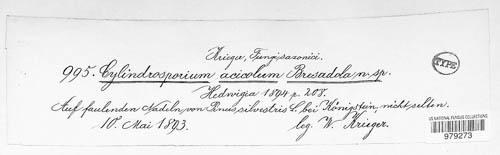 Krieger, Fungi saxonici.
995. Cylindrosporium acicolum Bresadola, n. sp.
TYPE
Hedwigia 1894 p. 207.
Auf faulenden Nadeln von Pinus silvestris L. bei Königstein, nicht selten.
10. Mai 1893. leg. W. Krieger.
US NATIONAL FUNGUS COLLECTIONS
979273